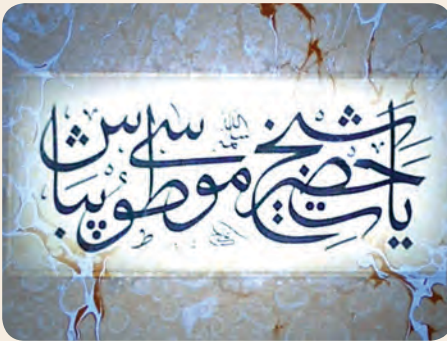 يا حضرت شيخ موسى طوپباش